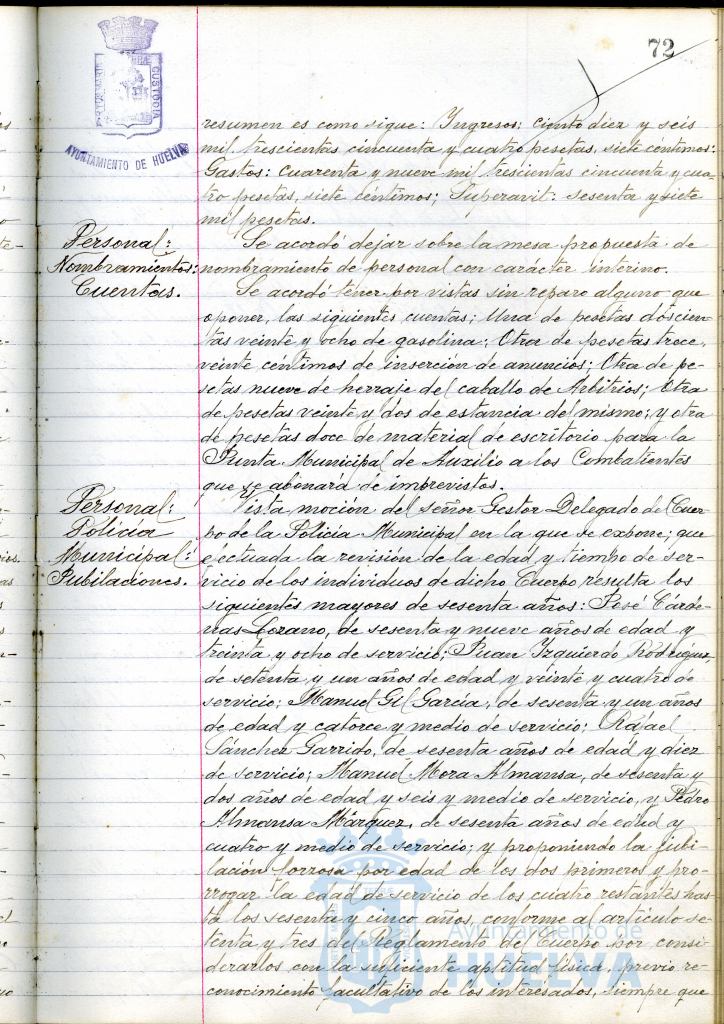 72
CUSTODIA
AYUNTAMIENTO DE HUELVA
resumen es como sigue: Ingresos; ciento diez y seis
mil trescientas cincuenta y cuatro pesetas, siete céntimos:
Gastos: cuarenta y nueve mil trescientas cincuenta y cua-
tro pesetas, siete céntimos; Superavit: sesenta y siete
mil pesetas.
Personal:
Nombramientos:
Se acordó dejar sobre la mesa propuesta de
nombramiento de personal con carácter interino.
Cuentas.
Se acordó tener por vistas sin reparo alguno que
oponer, las siguientes cuentas; Una de pesetas doscien-
tas veinte y ocho de gasolina; Otra de pesetas trece,
veinte céntimos de inserción de anuncios; Otra de pe-
setas nueve de herraje del caballo de Arbitrios; Otra
de pesetas veinte y dos de estancia del mismo; y otra
de pesetas doce de material de escritorio para la
Junta Municipal de Auxilio a los Combatientes
que se abonará de imprevistos.
Personal:
Policía
Municipal:
Jubilaciones.
Vista moción del señor Gestor Delegado del Cuer-
po de la Policía Municipal en la que se expone; que
efectuada la revisión de la edad y tiempo de ser-
vicio de los individuos de dicho Cuerpo resulta los
siguientes mayores de sesenta años: José Cárde-
nas Lozano, de sesenta y nueve años de edad y
treinta y ocho de servicio; Juan Izquierdo Rodríguez,
de setenta y un años de edad y veinte y cuatro de
servicio; Manuel Gil García, de sesenta y un años
de edad y catorce y medio de servicio; Rafael
Sánchez Garrido, de sesenta años de edad y diez
de servicio; Manuel Mora Almansa, de sesenta y
dos años de edad y seis y medio de servicio, y Pedro
Almansa Márquez, de sesenta años de edad y
cuatro y medio de servicio; y proponiendo la jubi-
lación forzosa por edad de los dos primeros y pro-
rrogar la edad de servicio de los cuatro restantes has-
ta los sesenta y cinco años, conforme al artículo se-
tenta y tres del Reglamento del Cuerpo por consi-
derarlos con la suficiente aptitud física, previo re-
conocimiento facultativo de los interesados, siempre que
Ayuntamiento de
HUELVA